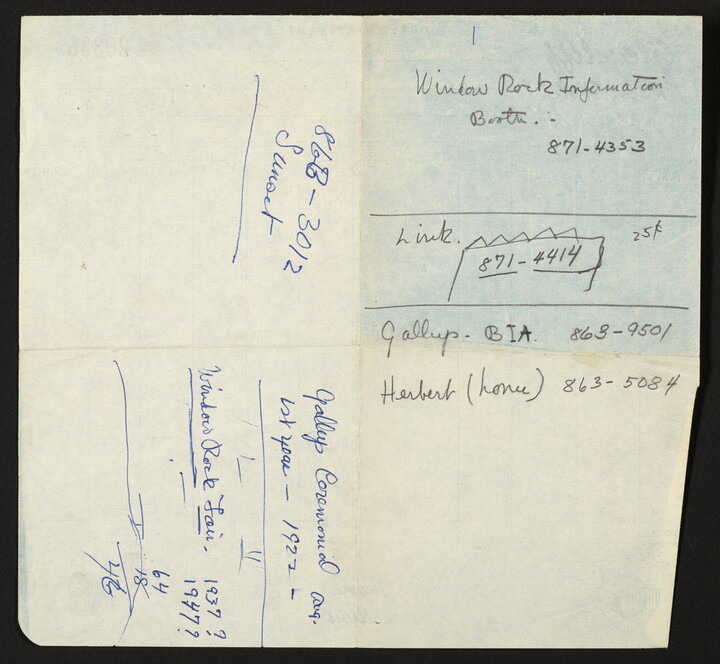 Window Rock Information
Booth. -
871-4353
Link.
25¢
871-4414
Gallup - BIA. 863-9501
Herbert (home) 863-5084
863-3012
Sunset
Gallup Ceremonial Aug.
1st year - 1922 -
Window Rock Fair. 1937?
1947?
64
18
46